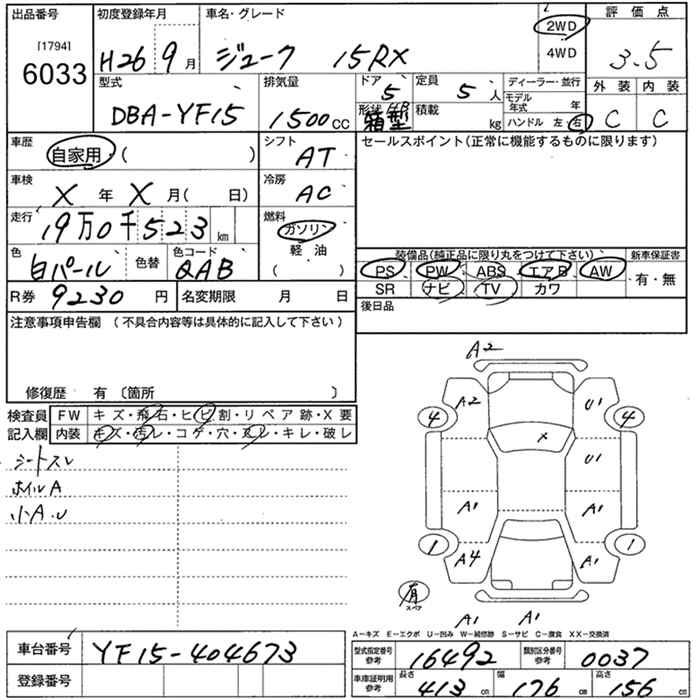 出品番号
[1794]
6033
初度登録年月
H26 9月
車名・グレード
ジューク 15RX
2WD
4WD
評価点
3.5
外装 内装
C C
型式
DBA-YF15
排気量
1500cc
ドア
5
定員
5人
形状
箱型
積載
kg
ディーラー・並行
モデル年式 年
ハンドル 左・右
車歴
自家用・( )
シフト
AT
車検
X年X月( 日)
冷房
AC
走行
19万0千523km
燃料
ガソリン
軽油
( )
色
白パール
色替
色コード
QAB
R券 9230円
名変期限 月 日
セールスポイント(正常に機能するものに限ります)
装備品(純正品に限り丸をつけて下さい)
PS PW ABS エアB AW
SR ナビ TV カワ
新車保証書
有・無
後日品
注意事項申告欄 (不具合内容等は具体的に記入して下さい)
修復歴 有〔箇所 〕
検査員記入欄
FW キズ・飛石・ヒビ割・リペア跡・X要
内装 キズ・汚レ・コゲ・穴・スレ・キレ・破レ
シートスレ
ホイルA
小A.U
A2
A2 U1
4 4
X
U1
A1 A1
1 1
A4 A1
有
スペア
A1 A1
A-キズ E-エクボ U-凹み W-補修跡 S-サビ C-腐食 XX-交換済
車台番号 YF15-404673
登録番号
型式指定番号
参考
16492
類別区分番号
参考
0037
車庫証明用
参考
長さ 413cm
幅 176cm
高さ 156cm